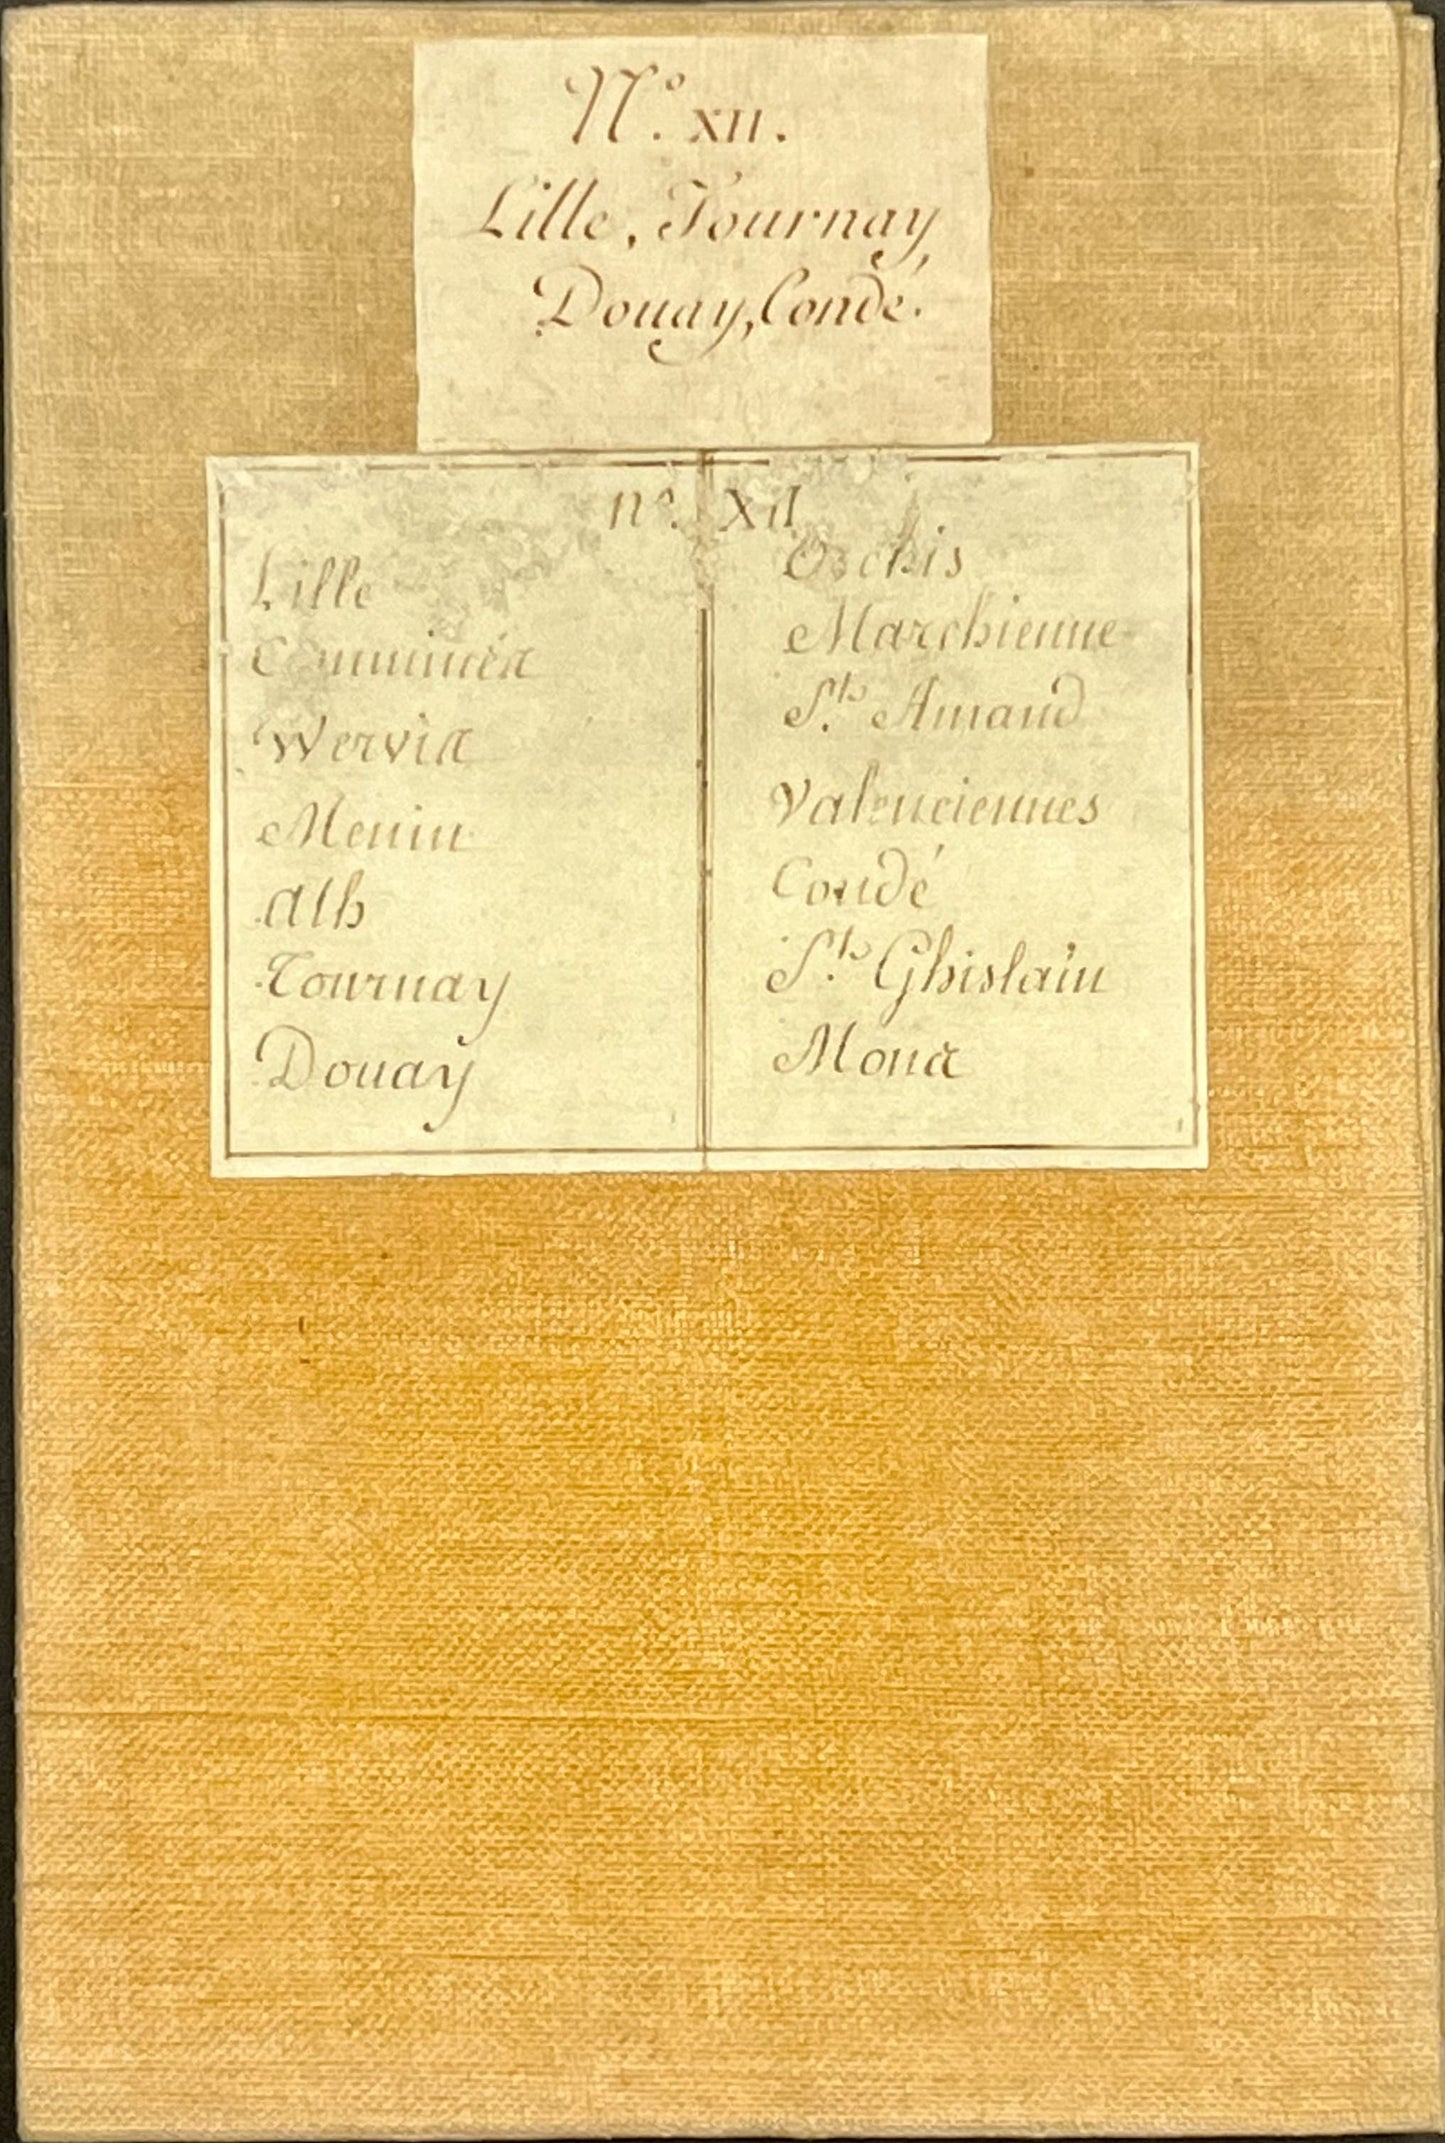 N.º XII.
Lille, Tournay,
Douay, Condé.
nº. XII
Lille
Commines
Wervis
Menin
Ath
Tournay
Douay
Orchis
Marchienne
S.t Amand
Valenciennes
Condé
S.t Ghislain
Mons